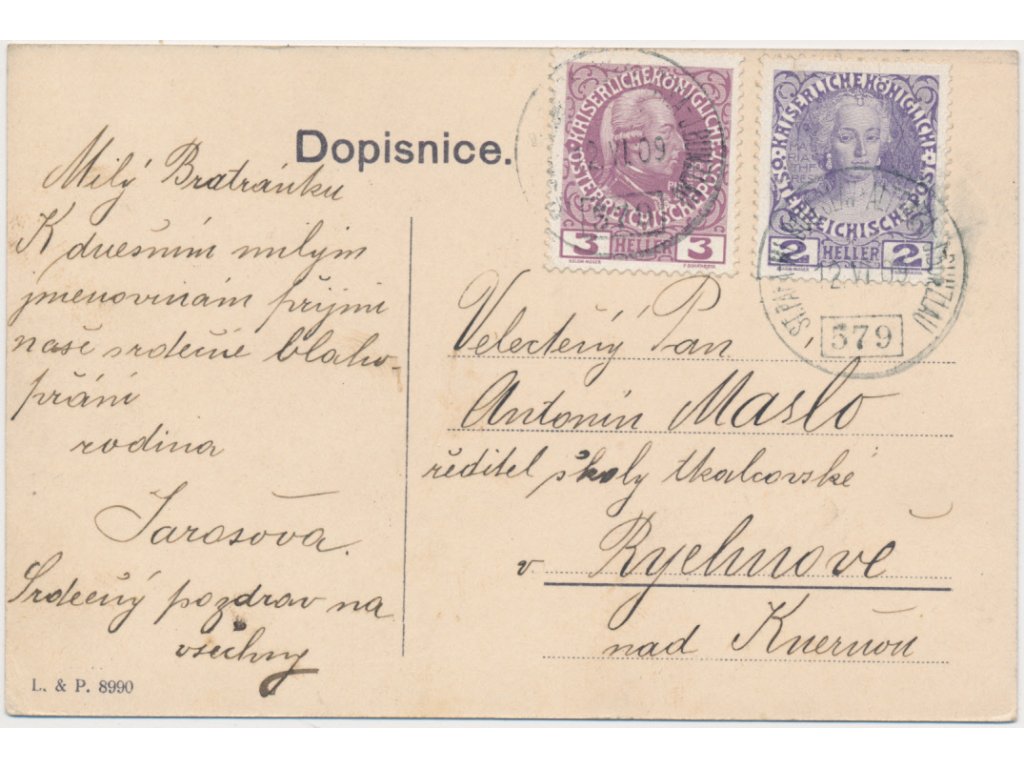 Dopisnice.
Milý Bratránku
K dnešním milým
jmenovinám přijmi
naše srdečné blaho-
přání
rodina
Jarošova.
Srdečný pozdrav na
všechny
L. & P. 8990
KAISERLICHE KÖNIGLICHE
ÖSTERREICHISCHE POST
3 HELLER 3
KAISERLICHE KÖNIGLICHE
ÖSTERREICHISCHE POST
2 HELLER 2
12 VI 09
579
Velectěný Pan
Antonín Maslo
ředitel školy tkalcovské
v Rychnově
nad Kněžnou